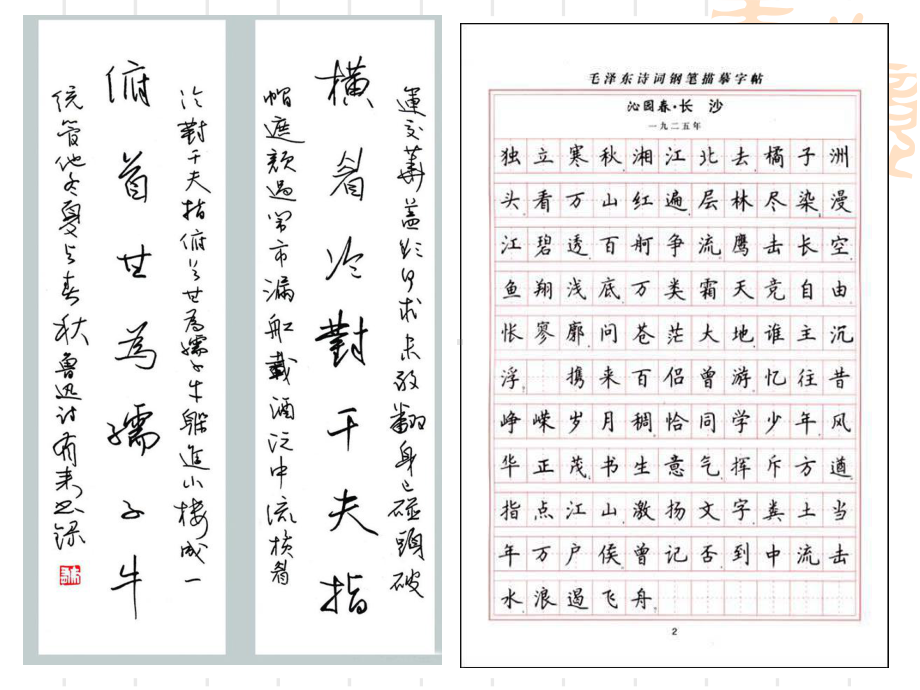 運交華蓋欲何求未敢翻身已碰頭破
橫眉冷對千夫指
帽遮顏過鬧市漏船載酒泛中流橫眉
冷對千夫指俯首甘為孺子牛躲進小樓成一
俯首甘為孺子牛
統管他冬夏与春秋魯迅詩
毛泽东诗词钢笔描摹字帖
沁园春·长沙
一九二五年
独立寒秋湘江北去橘子洲
头看万山红遍层林尽染漫
江碧透百舸争流鹰击长空
鱼翔浅底万类霜天竞自由
怅寥廓问苍茫大地谁主沉
浮 携来百侣曾游忆往昔
峥嵘岁月稠恰同学少年风
华正茂书生意气挥斥方遒
指点江山激扬文字粪土当
年万户侯曾记否到中流击
水浪遏飞舟
2